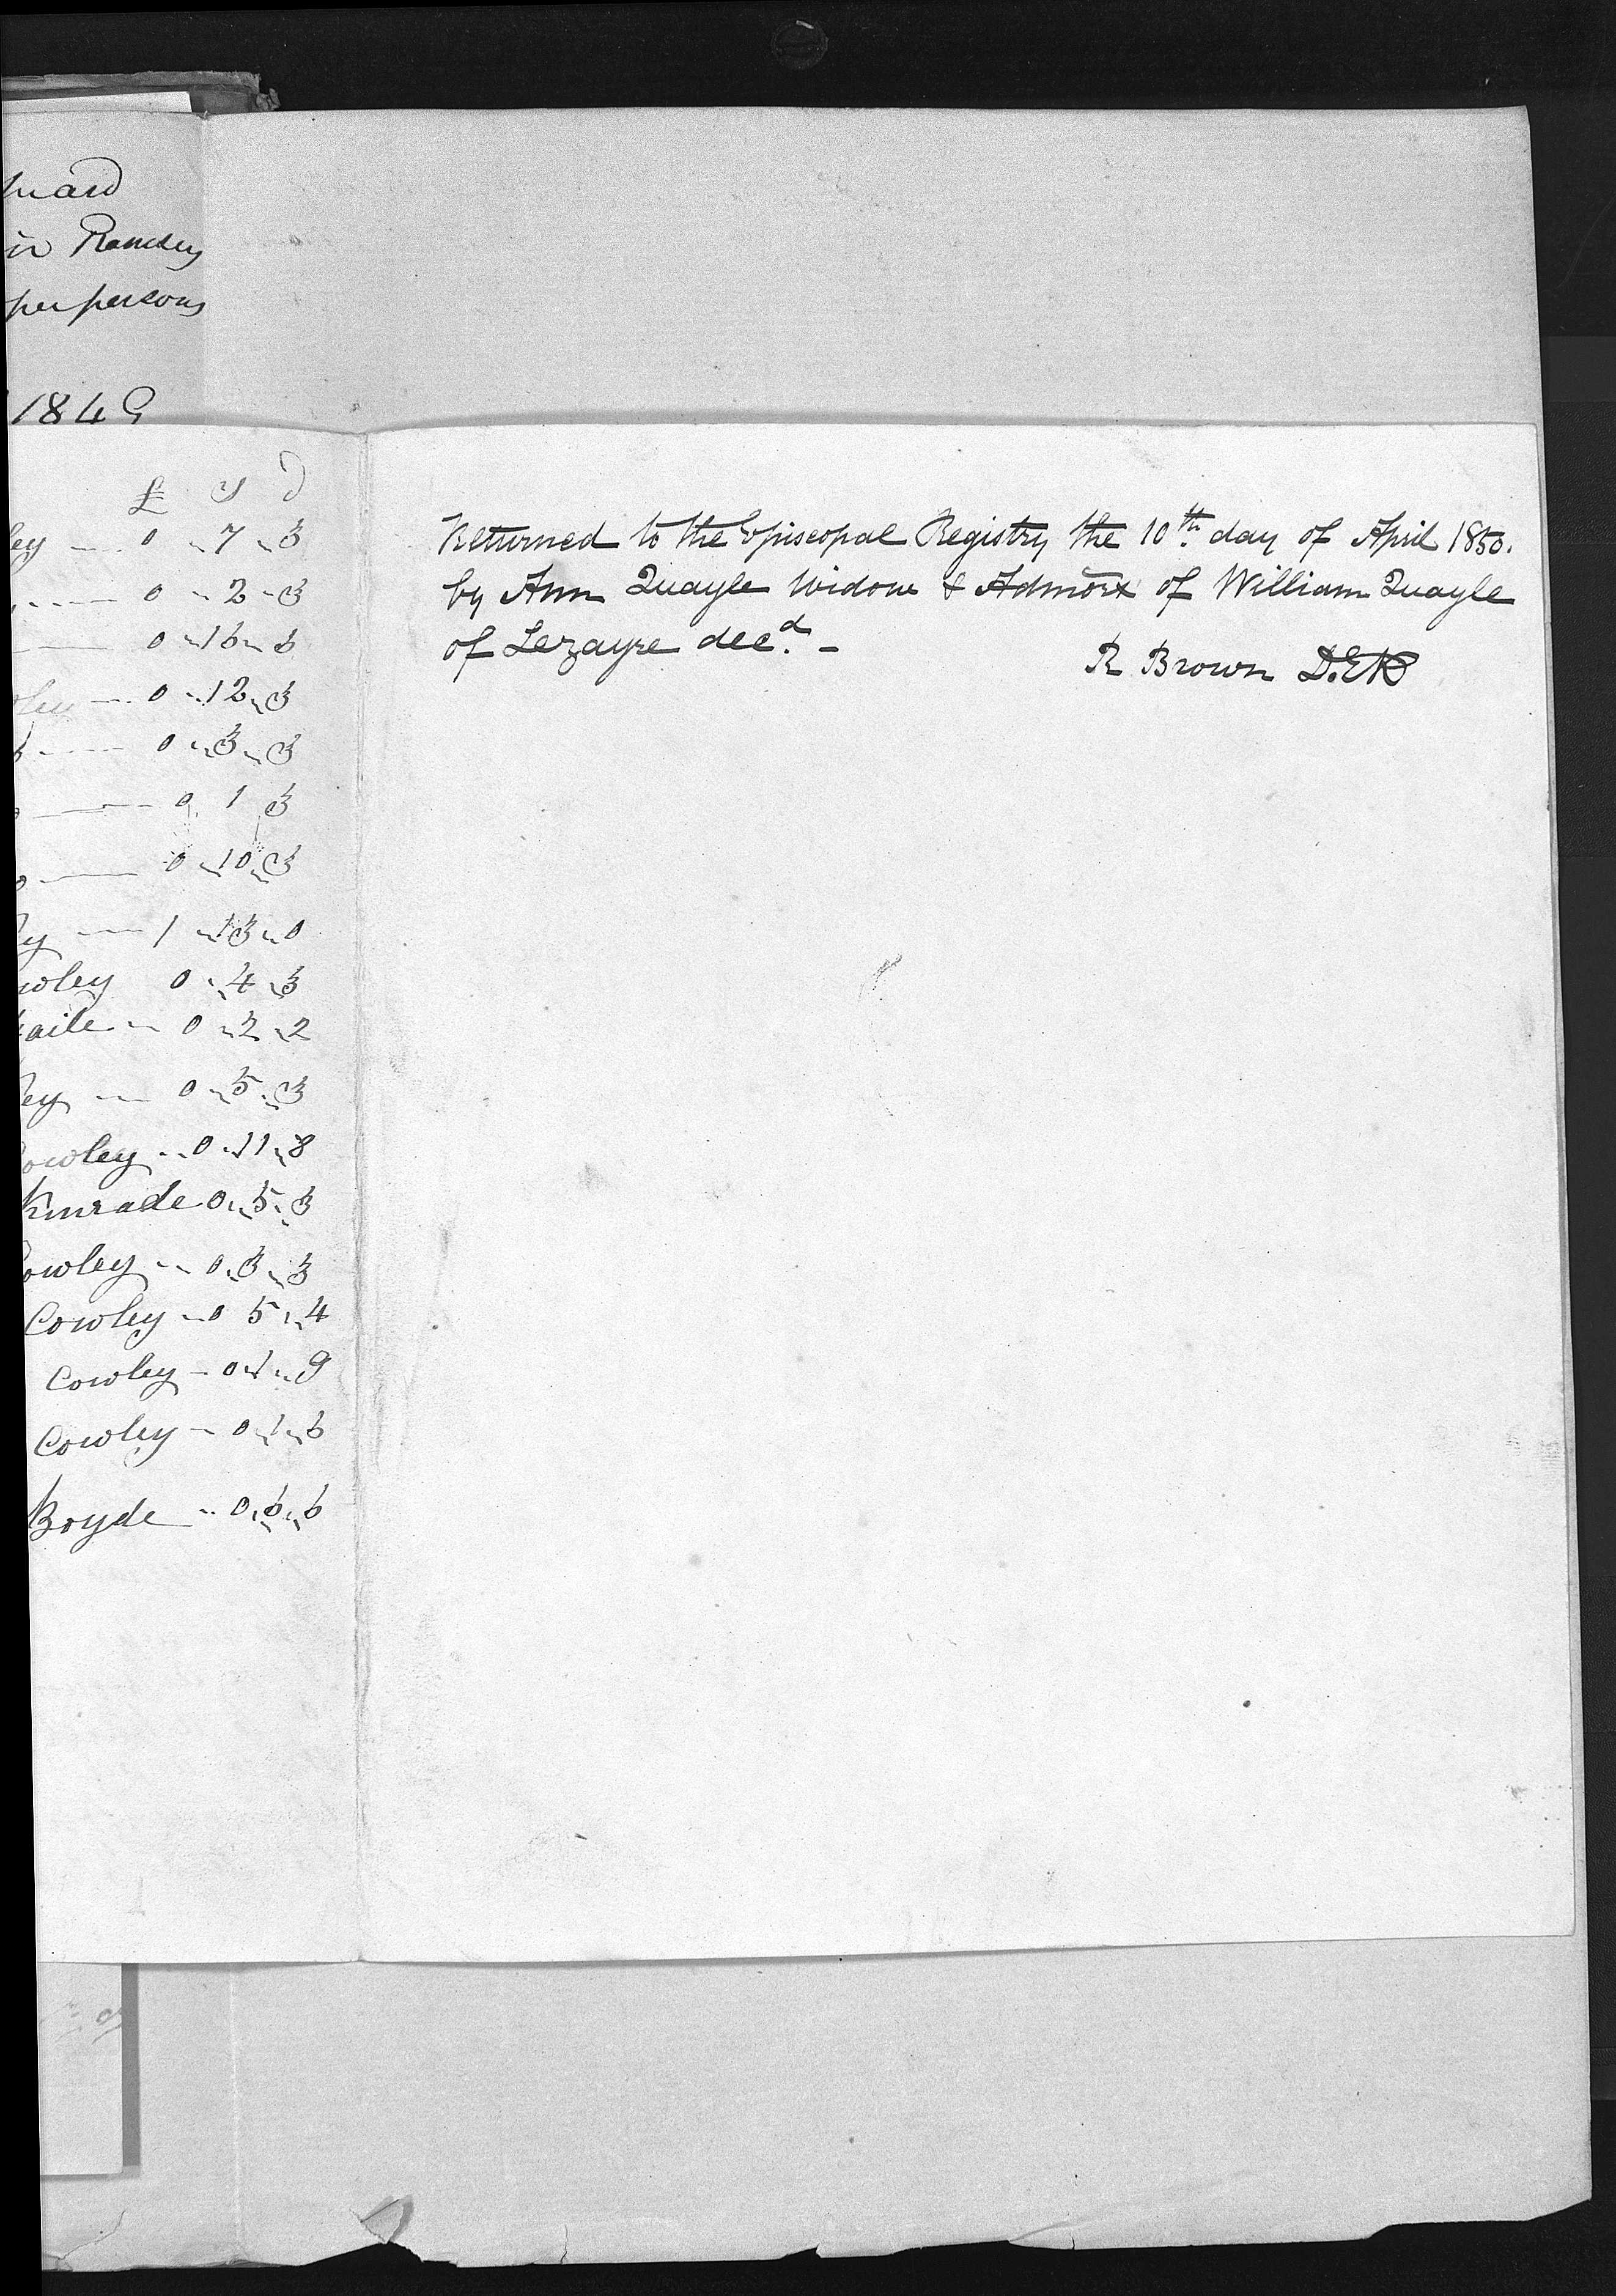 in Ramsey
per persons
1849
£ s d
ley 0 7 3
0 2 3
0 16 6
0 12 3
0 3 3
0 1 3
0 10 3
y 1 13 0
wley 0 4 3
aile 0 2 2
ey 0 5 3
owley 0 11 8
Kinrade 0 5 3
owley 0 3 3
Cowley 0 5 4
Cowley 0 1 9
Cowley 0 1 6
Boyde 0 6 6
Returned to the Episcopal Registry the 10th day of April 1850.
by Ann Quayle Widow & Admorx of William Quayle
of Lezayre decd. -
R Brown D.E.R